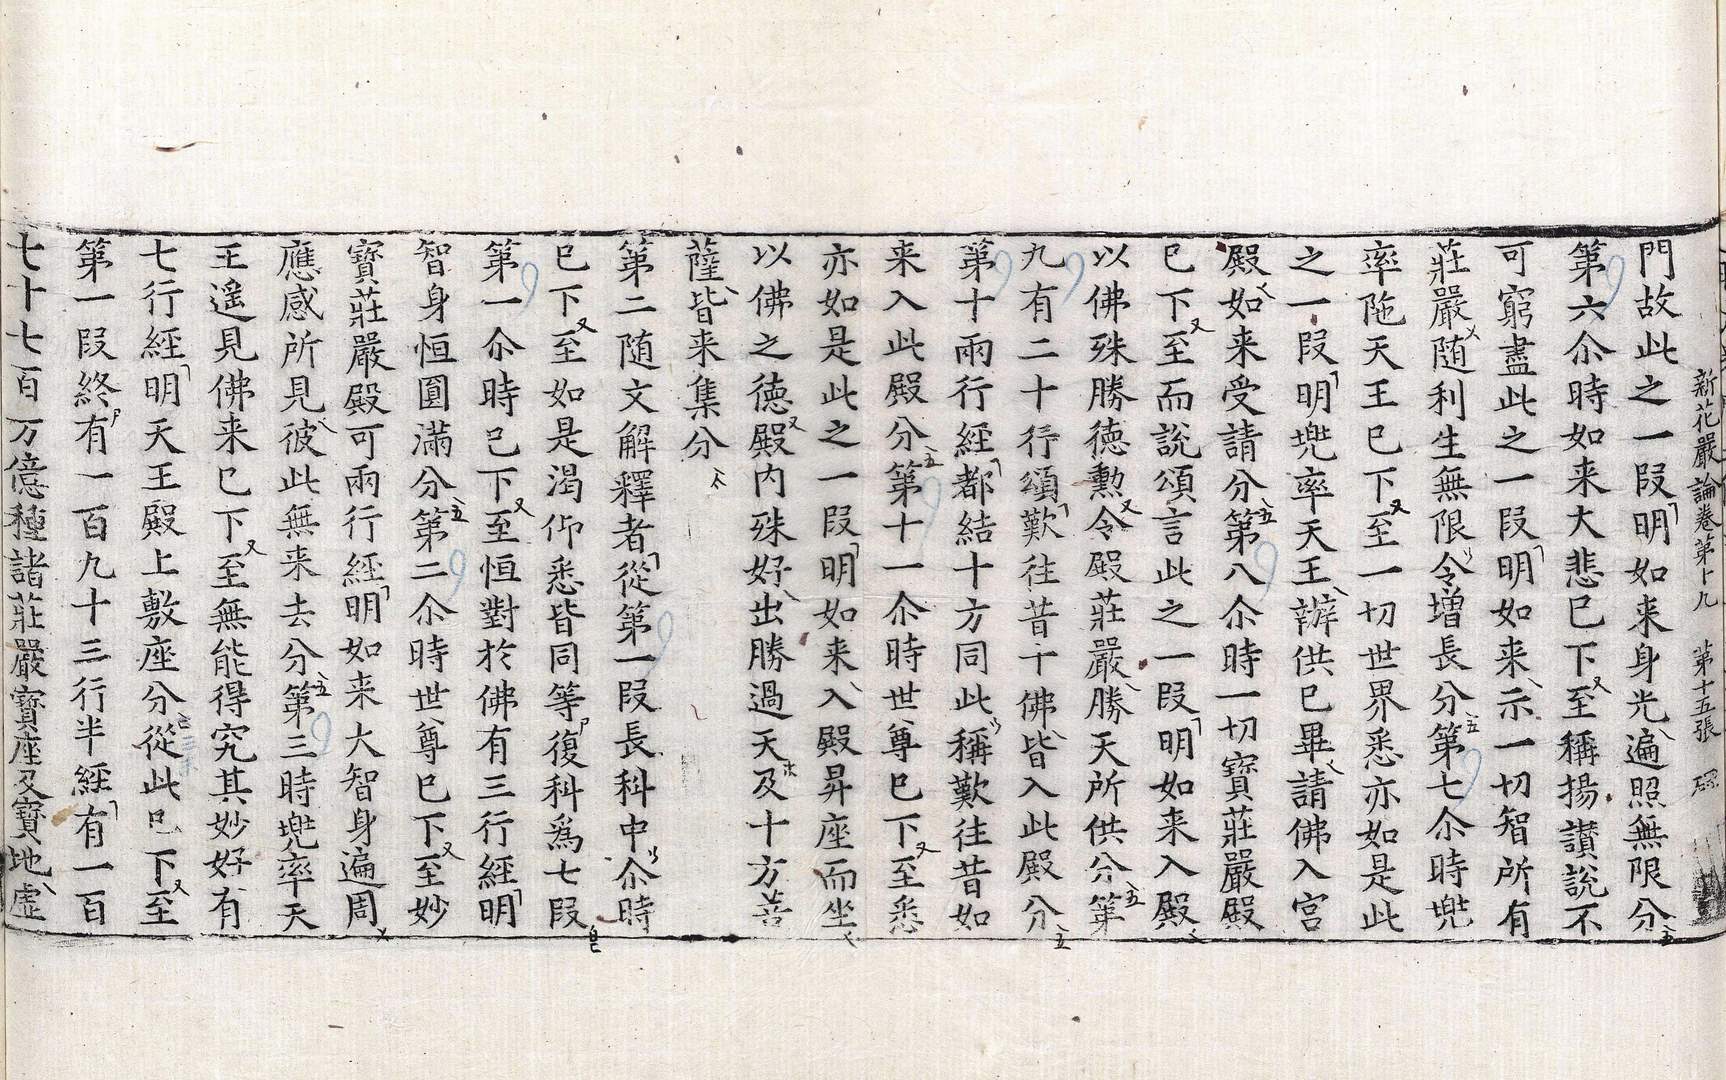 新花嚴論卷第十九　第十五張
門故此之一段明如来身光遍照無限分
第六尒時如来大悲已下至稱揚讃說不
可窮盡此之一段明如来示一切智所有
莊嚴随利生無限令增長分第七尒時兠
率陁天王已下至一切世界悉亦如是此
之一段明兠率天王辦供已畢請佛入宫
殿如来受請分第八尒時一切寶莊嚴殿
已下至而說頌言此之一段明如来入殿
以佛殊勝德勲令殿莊嚴勝天所供分第
九有二十行頌歎往昔十佛皆入此殿分
第十兩行經都結十方同此稱歎往昔如
来入此殿分第十一尒時世尊已下至悉
亦如是此之一段明如来入殿昇座而坐
以佛之德殿内殊好出勝過天及十方菩
薩皆来集分
第二随文解釋者從第一段長科中尒時
已下至如是渴仰悉皆同等復科爲七段
第一尒時已下至恒對於佛有三行經明
智身恒圓滿分第二尒時世尊已下至妙
寶莊嚴殿可兩行經明如来大智身遍周
應感所見彼此無来去分第三時兠率天
王遥見佛来已下至無能得究其妙好有
七行經明天王殿上敷座分從此已下至
第一段終有一百九十三行半經有一百
七十七百万億種諸莊嚴寶座及寶地虛